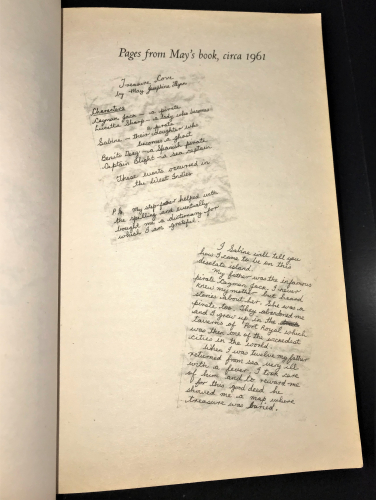 Pages from May's book, circa 1961
Treasure Cove
by May Josephine
Characters
Cayman Jack — a pirate
Lucette Sharp — a lady who becomes
a pirate
Sabine — their daughter who
becomes a ghost
Benito Dary — a Spanish pirate
Captain Blight — a sea captain
These events occurred in
the West Indies
P.S. My step-father helped with
the spelling and eventually
bought me a dictionary for
which I am grateful.
I Sabine will tell you
how I came to be on this
desolate island.
My father was the infamous
pirate Cayman Jack. I never
knew my mother but heard
stories about her. She was a
pirate, too. They abandoned me
and I grew up in the
taverns of Port Royal which
was then one of the wickedest
cities in the world.
When I was twelve my father
returned from sea very ill
with a fever. I took care
of him and to reward me
for this good deed he
showed me a map where
treasure was buried.